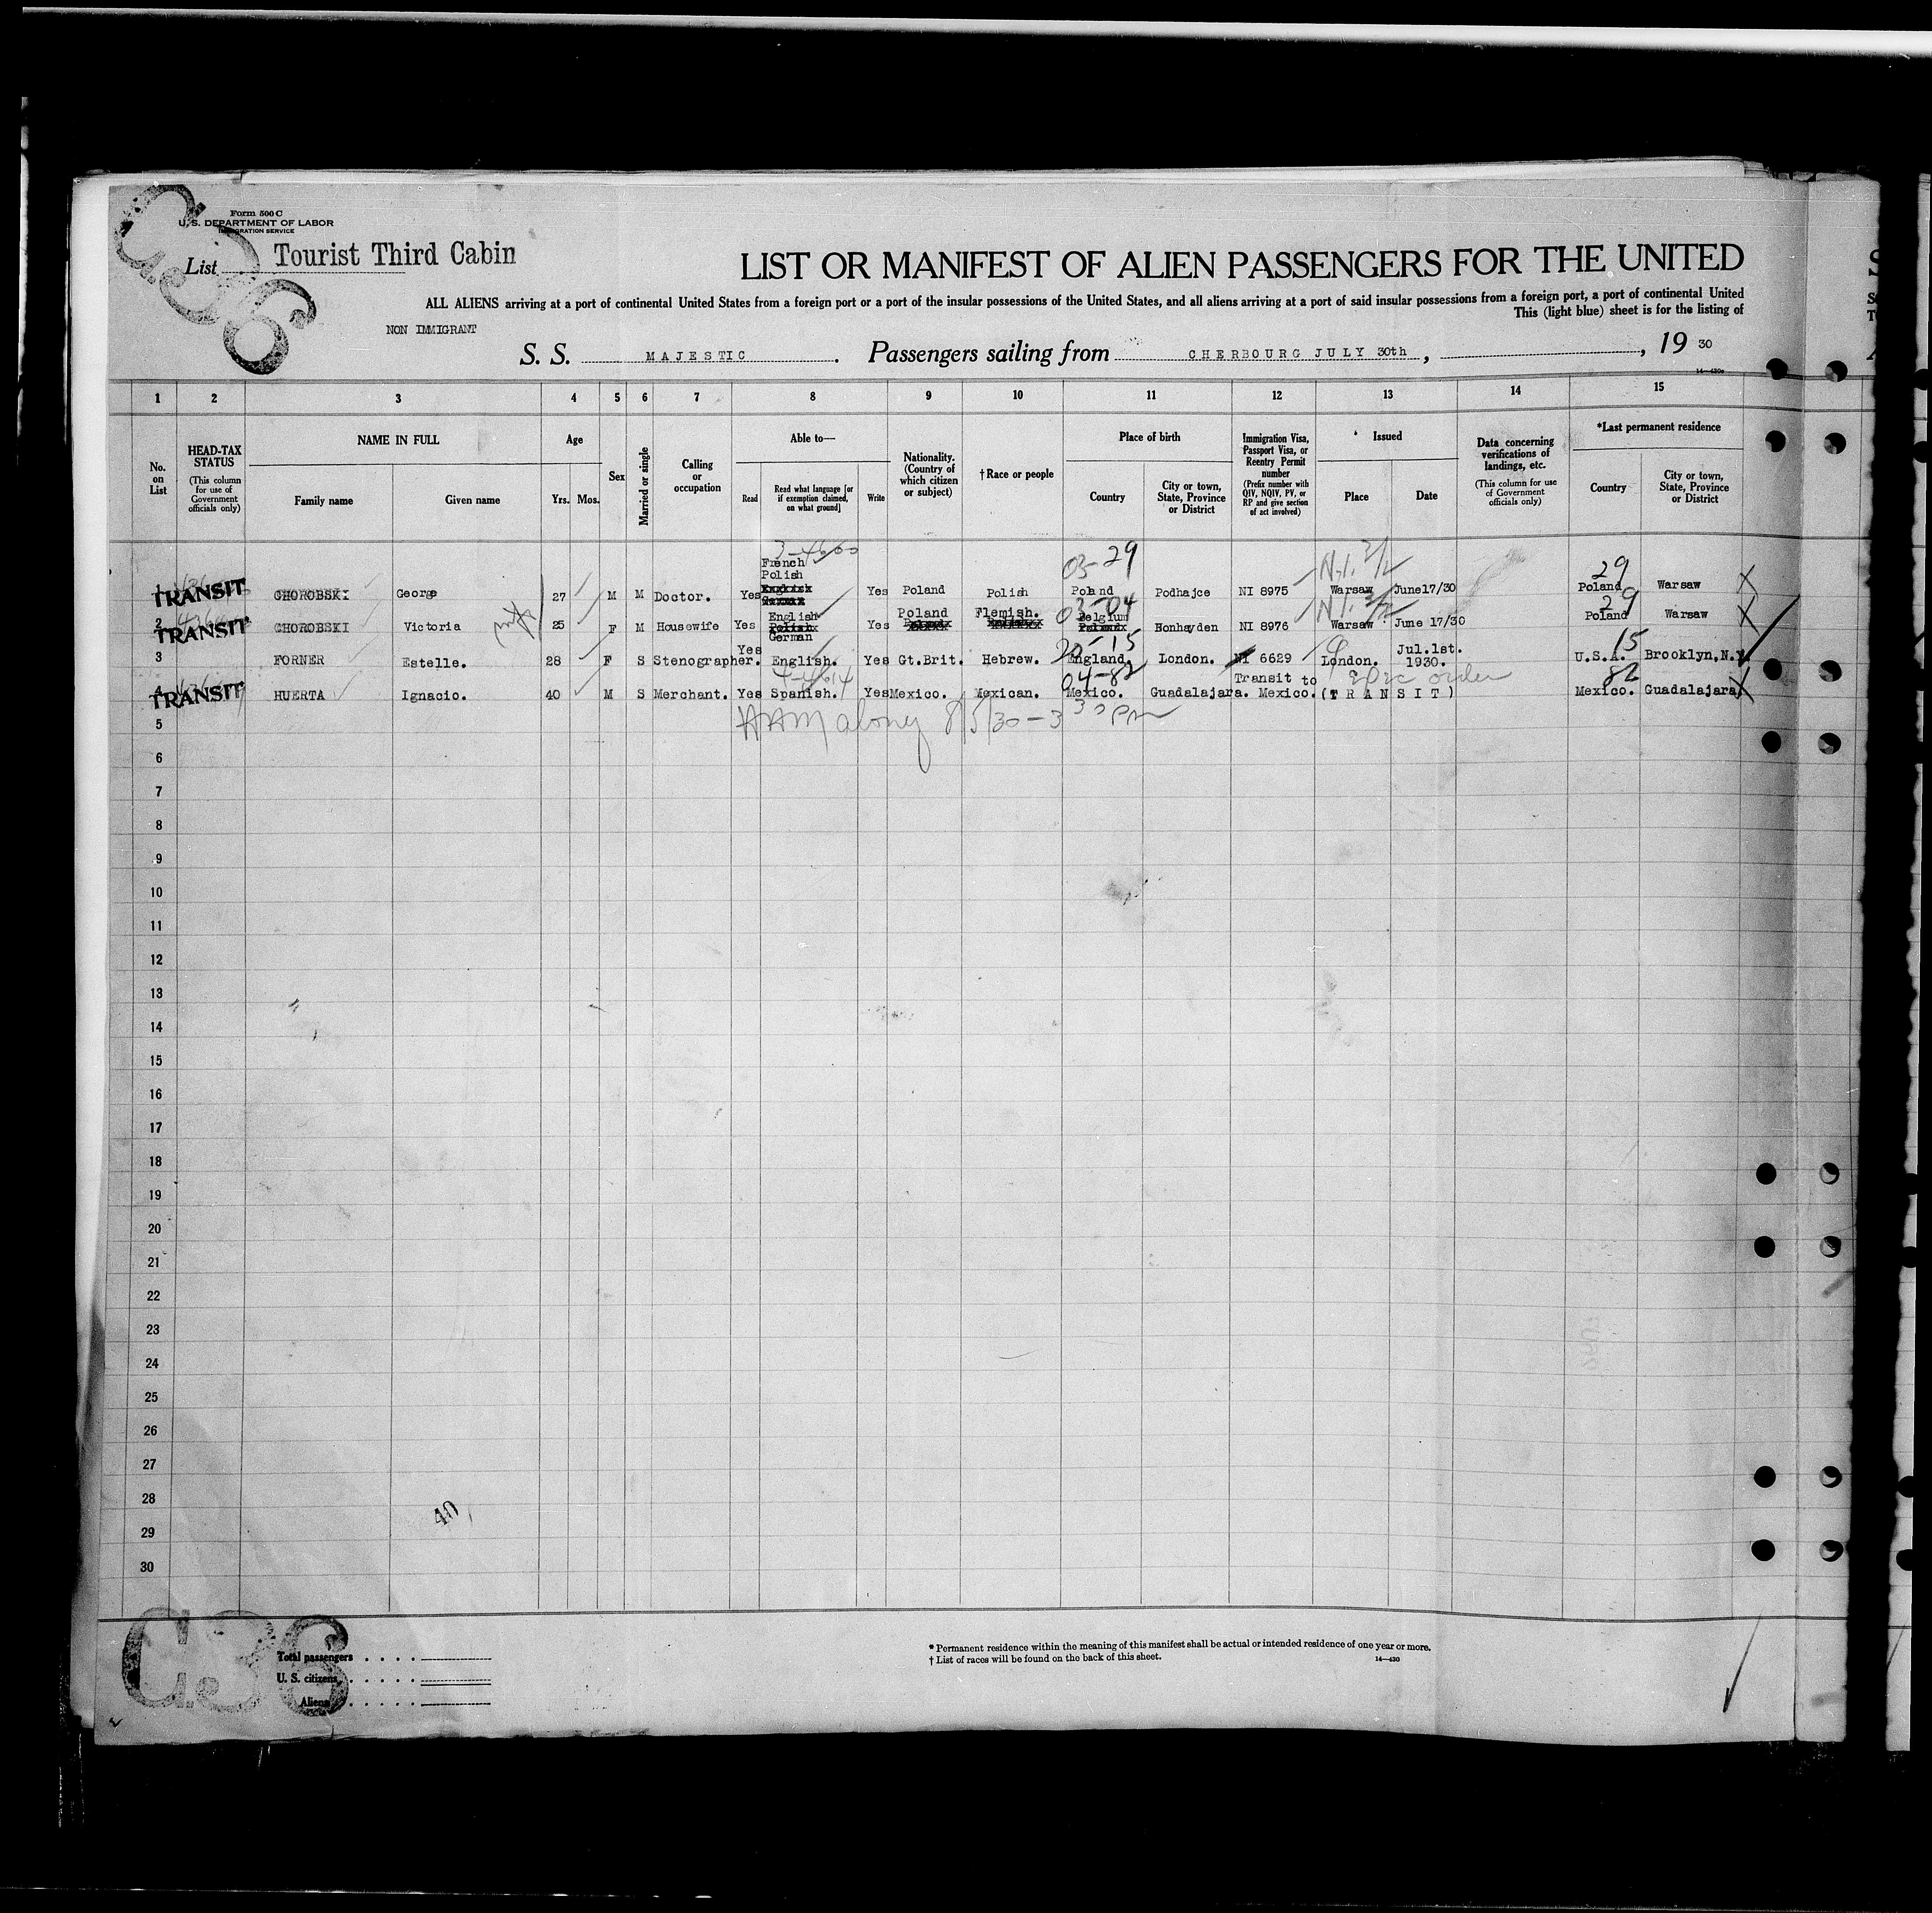 Form 500 C
U. S. DEPARTMENT OF LABOR
IMMIGRATION SERVICE
C36
List Tourist Third Cabin
LIST OR MANIFEST OF ALIEN PASSENGERS FOR THE UNITED
ALL ALIENS arriving at a port of continental United States from a foreign port or a port of the insular possessions of the United States, and all aliens arriving at a port of said insular possessions from a foreign port, a port of continental United
This (light blue) sheet is for the listing of
NON IMMIGRANT
S. S. MAJESTIC. Passengers sailing from CHERBOURG JULY 30th, , 19 30
14—430a
1 2 3 4 5 6 7 8 9 10 11 12 13 14 15
No. on List
HEAD-TAX STATUS (This column for use of Government officials only)
NAME IN FULL
Family name Given name
Age
Yrs. Mos.
Sex
Married or single
Calling or occupation
Able to—
Read Read what language [or if exemption claimed, on what ground] Write
Nationality. (Country of which citizen or subject)
†Race or people
Place of birth
Country City or town, State, Province or District
Immigration Visa, Passport Visa, or Reentry Permit number (Prefix number with QIV, NQIV, PV, or RP and give section of act involved)
Issued
Place Date
Data concerning verifications of landings, etc. (This column for use of Government officials only)
*Last permanent residence
Country City or town, State, Province or District
03-29 29
French
Polish
1 TRANSIT CHOROBSKI George 27 M M Doctor. Yes English German Yes Poland Polish Poland Podhajce NI 8975 Warsaw June17/30 Poland Warsaw
03-04 29
2 TRANSIT CHOROBSKI Victoria 25 F M Housewife Yes English Polish German Yes Poland Flemish. Belgium Honhayden NI 8976 Warsaw June 17/30 Poland Warsaw
15
3 FORNER Estelle. 28 F S Stenographer. Yes English. Yes Gt.Brit. Hebrew. England. London. NI 6629 London. Jul.1st. 1930. U.S.A. Brooklyn,N.Y
04-82 82
4 TRANSIT HUERTA Ignacio. 40 M S Merchant. Yes Spanish. Yes Mexico. Mexican. Mexico. Guadalajara. Transit to Mexico. (TRANSIT) Mexico. Guadalajara
8/5/30 - 3 30 PM
5
6
7
8
9
10
11
12
13
14
15
16
17
18
19
20
21
22
23
24
25
26
27
28
29
30
40
C36
Total passengers
U. S. citizens
Aliens
* Permanent residence within the meaning of this manifest shall be actual or intended residence of one year or more.
† List of races will be found on the back of this sheet.
14—430